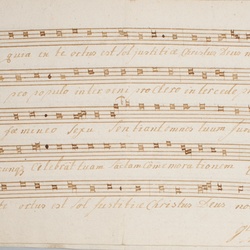 quia ex te ortus est Sol justitiæ Christus Deus n
pro populo interveni pro clero intercede
fæmineo Sexu Sentiant omnes tuum
celebrant tuam Sanctam Comemorationem
ortus est Sol Justitiæ Christus Deus no